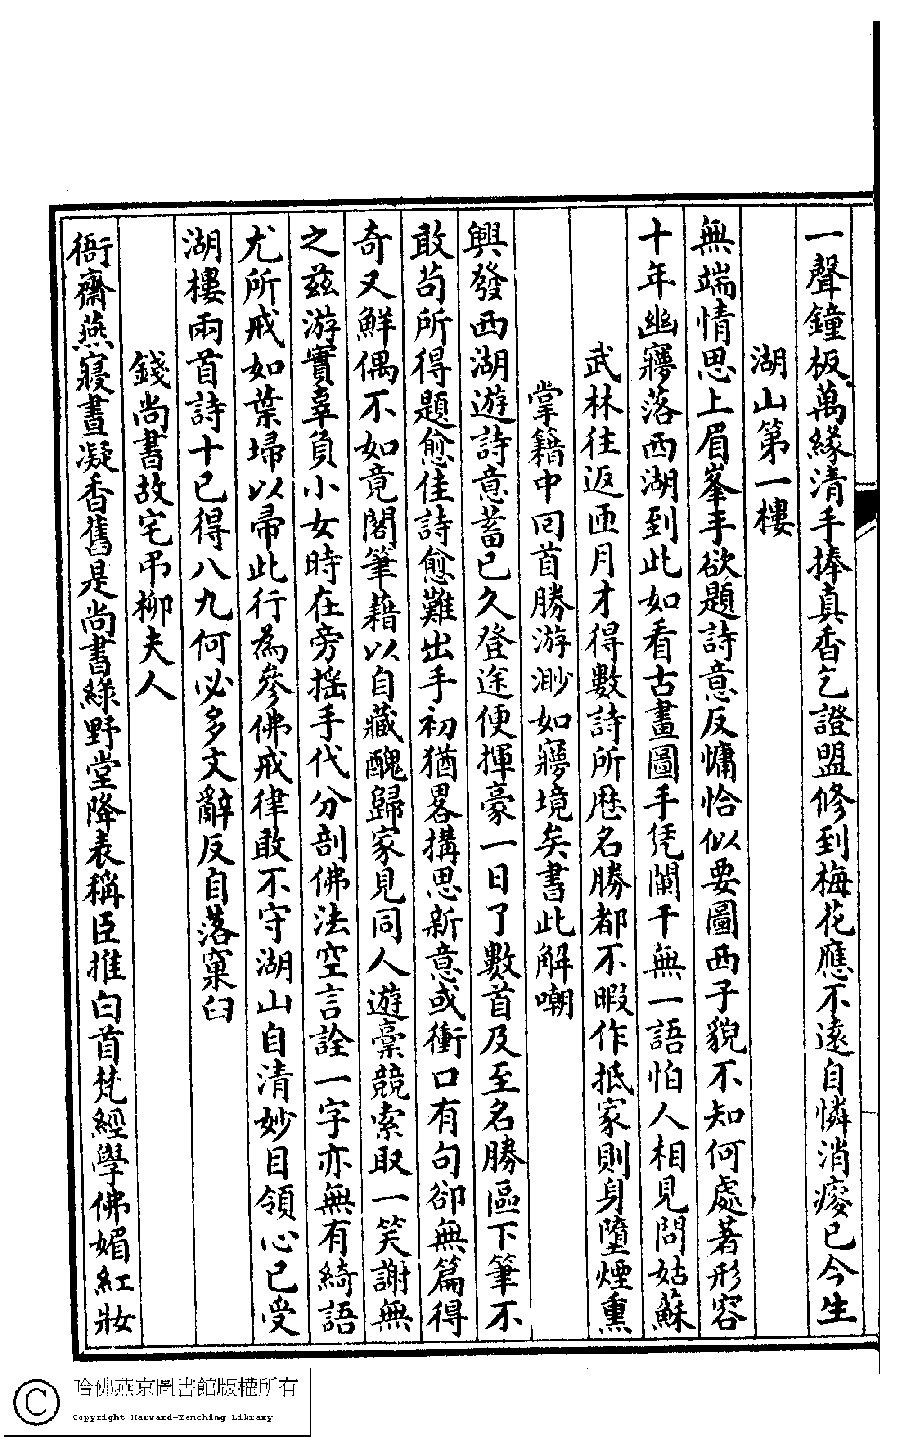 一聲鐘板萬緣清手捧真香乞證盟修到梅花應不遠自憐消瘦已今生
湖山第一樓
無端情思上眉峯手欲題詩意反慵恰似要圖西子貌不知何處著形容
十年幽寱落西湖到此如看古畫圖手凭闌干無一語怕人相見問姑蘇
武林往返匝月才得數詩所歴名勝都不暇作抵家則身墮煙熏
掌籍中囘首勝游渺如寱境矣書此解嘲
興發西湖遊詩意蓄已久登途便揮豪一日了數首及至名勝區下筆不
敢茍所得題愈佳詩愈難出手初猶畧搆思新意或衝口有句卻無篇得
奇又鮮偶不如竟閣筆藉以自藏醜歸家見同人遊稾競索取一笑謝無
之茲游實辜負小女時在旁搖手代分剖佛法空言詮一字亦無有綺語
尤所戒如葉埽以帚此行為參佛戒律敢不守湖山自清妙目領心已受
湖樓兩首詩十已得八九何必多文辭反自落窠臼
錢尚書故宅弔柳夫人
衙齋燕寢晝凝香舊是尚書綠野堂降表稱臣推白首梵經學佛媚紅妝
哈佛燕京圖書館版權所有
Copyright Harvard-Yenching Library